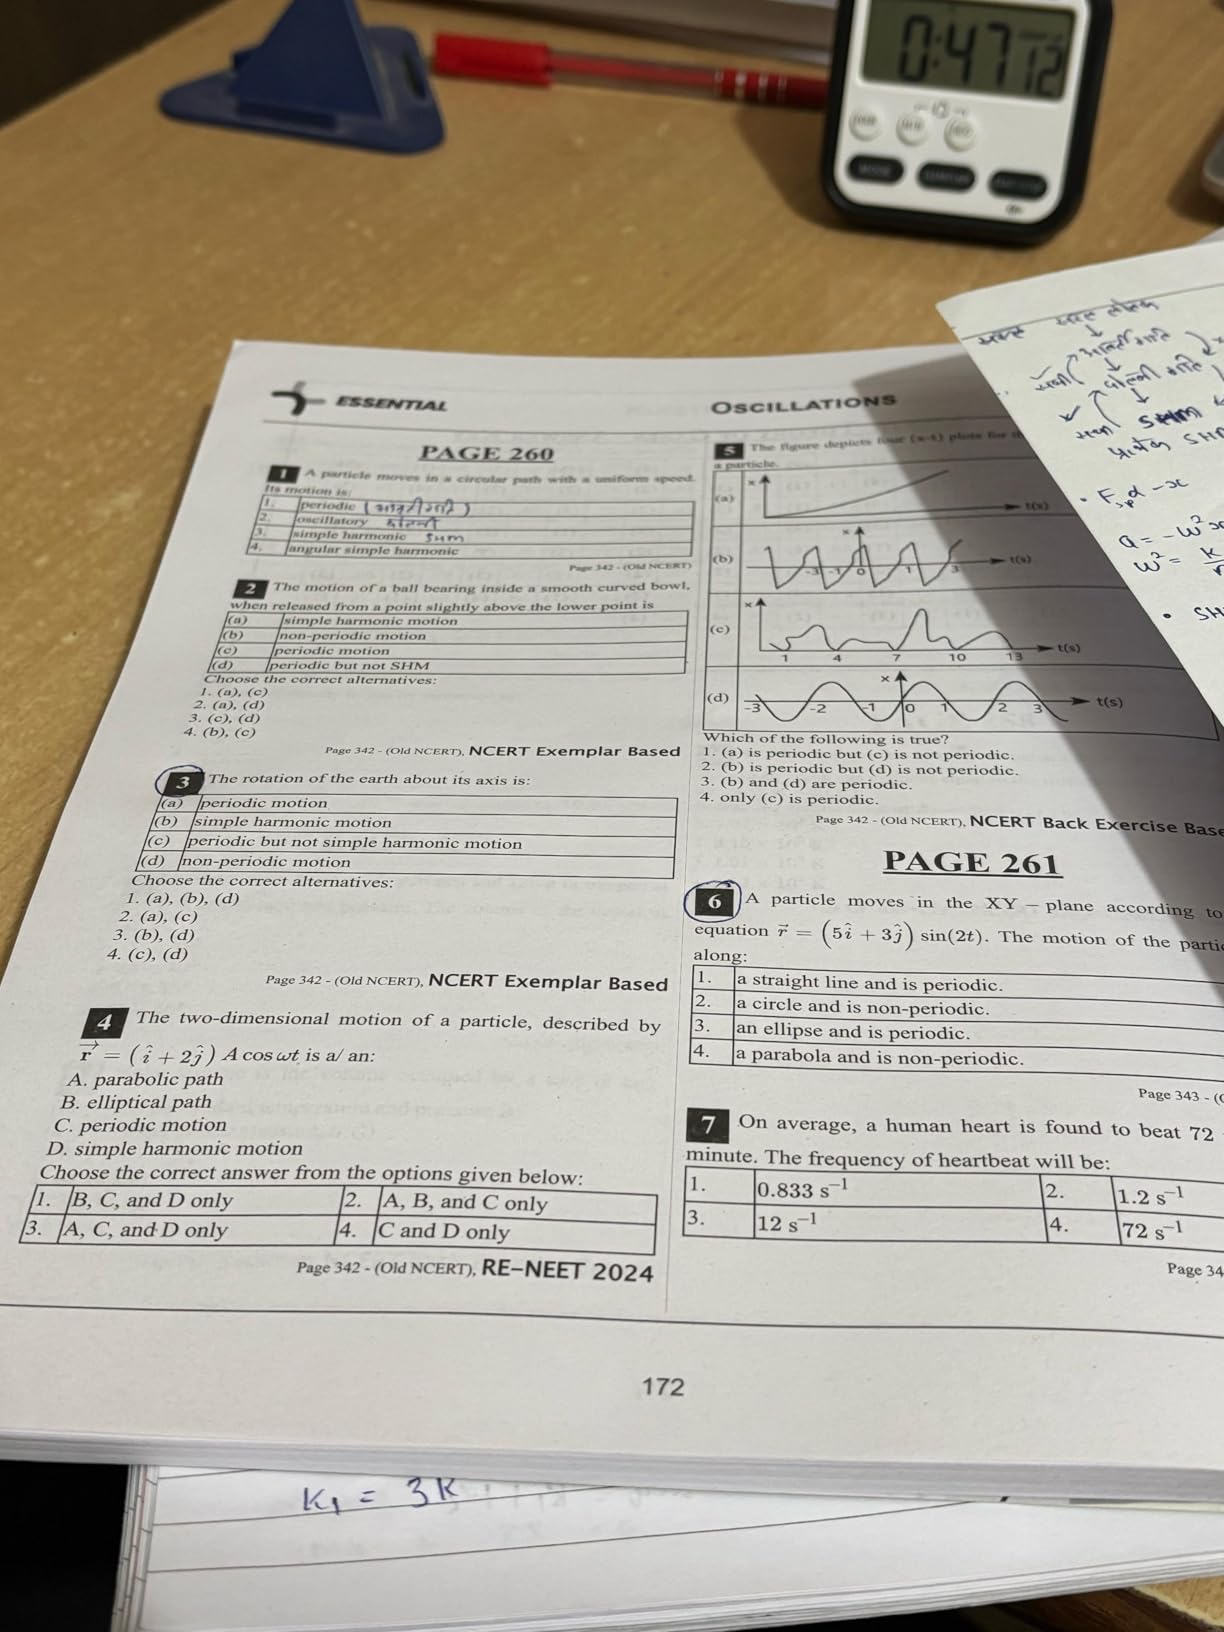 0:47 12
ESSENTIAL
OSCILLATIONS
PAGE 260
1 A particle moves in a circular path with a uniform speed.
Its motion is:
1. periodic (आवर्ती गति)
2. oscillatory दोलनी
3. simple harmonic SHM
4. angular simple harmonic
Page 342 - (Old NCERT)
2 The motion of a ball bearing inside a smooth curved bowl,
when released from a point slightly above the lower point is
(a) simple harmonic motion
(b) non-periodic motion
(c) periodic motion
(d) periodic but not SHM
Choose the correct alternatives:
1. (a), (c)
2. (a), (d)
3. (c), (d)
4. (b), (c)
Page 342 - (Old NCERT), NCERT Exemplar Based
3 The rotation of the earth about its axis is:
(a) periodic motion
(b) simple harmonic motion
(c) periodic but not simple harmonic motion
(d) non-periodic motion
Choose the correct alternatives:
1. (a), (b), (d)
2. (a), (c)
3. (b), (d)
4. (c), (d)
Page 342 - (Old NCERT), NCERT Exemplar Based
4 The two-dimensional motion of a particle, described by
r⃗ = (î + 2ĵ) A cos ωt is a/ an:
A. parabolic path
B. elliptical path
C. periodic motion
D. simple harmonic motion
Choose the correct answer from the options given below:
1. B, C, and D only 2. A, B, and C only
3. A, C, and D only 4. C and D only
Page 342 - (Old NCERT), RE-NEET 2024
5 The figure depicts four (x-t) plots for
a particle.
(a) x t(s)
(b) x -3 -1 0 1 3 t(s)
(c) x 1 4 7 10 13 t(s)
(d) x -3 -2 -1 0 1 2 3 t(s)
Which of the following is true?
1. (a) is periodic but (c) is not periodic.
2. (b) is periodic but (d) is not periodic.
3. (b) and (d) are periodic.
4. only (c) is periodic.
Page 342 - (Old NCERT), NCERT Back Exercise Base
PAGE 261
6 A particle moves in the XY – plane according to
equation r⃗ = (5î + 3ĵ) sin(2t). The motion of the parti
along:
1. a straight line and is periodic.
2. a circle and is non-periodic.
3. an ellipse and is periodic.
4. a parabola and is non-periodic.
Page 343 - (
7 On average, a human heart is found to beat 72
minute. The frequency of heartbeat will be:
1. 0.833 s⁻¹ 2. 1.2 s⁻¹
3. 12 s⁻¹ 4. 72 s⁻¹
Page 34
172
सरल
आवर्ती गति
दोलनी गति
SHM
SH
• F α -x
a = -ω²x
ω² = K
• SH
K₁ = 3K